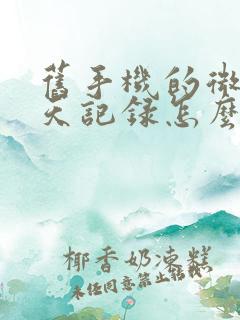 舊手機的微
天記錄怎麼
椰香奶凍糕
未经同意禁止转载